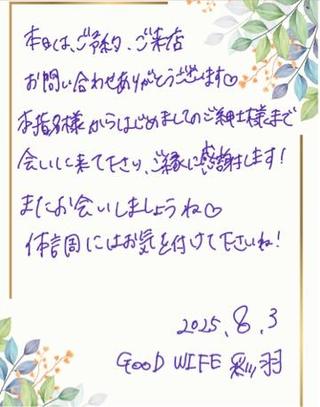 本日は、ご予約、ご来店
お問い合わせありがとうございます♡
本指名様からはじめましてのご紳士様まで
会いに来て下さり、ご縁に感謝します!
またお会いしましょうね♡
体調にはお気を付けて下さいね!
2025.8.3
GOOD WIFE 彩羽